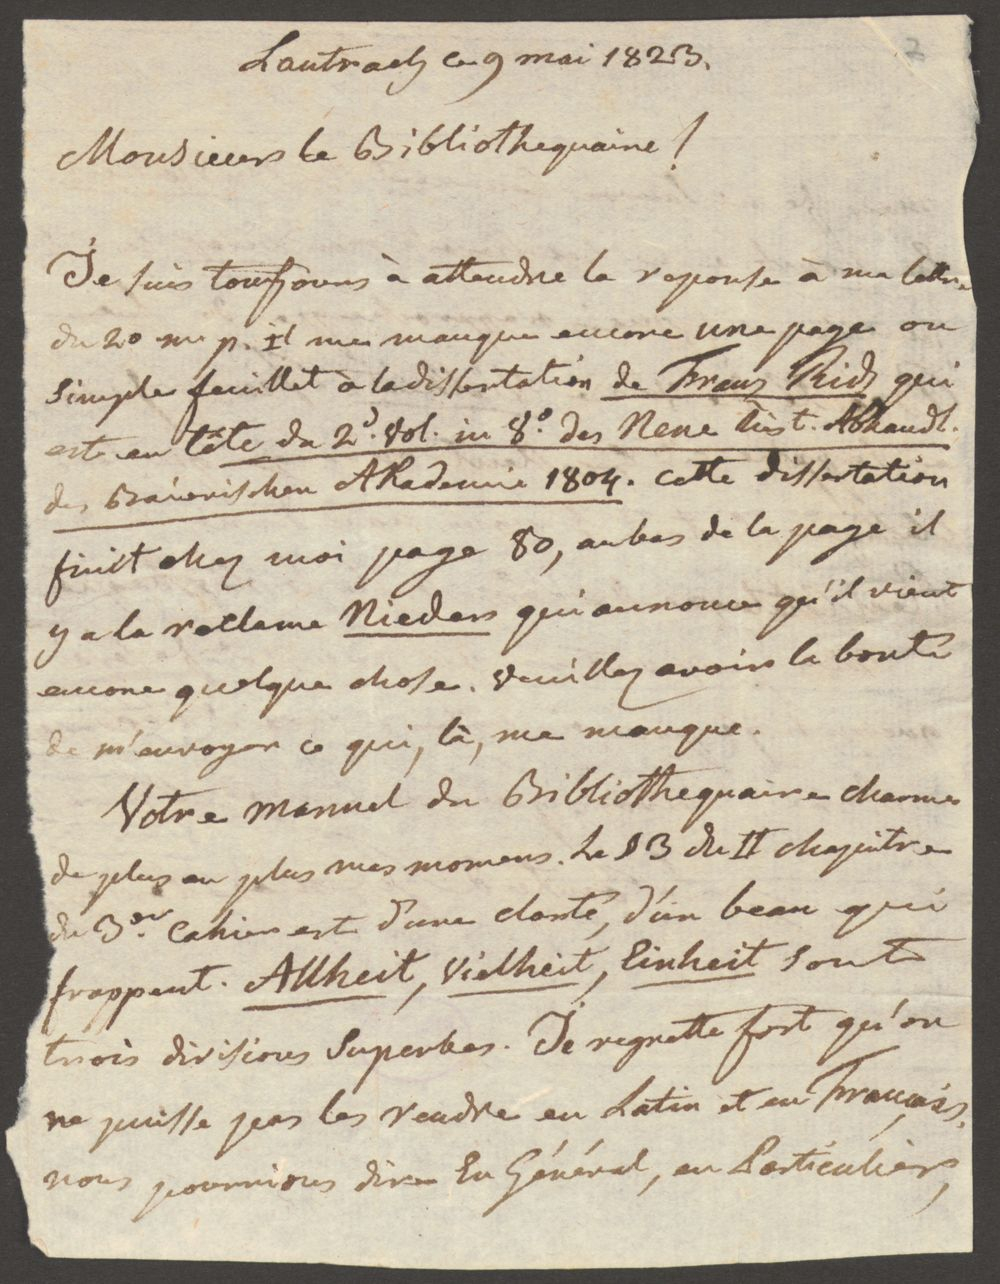 2
Lautrach ce 9 mai 1823.
Monsieur le Bibliothequaire!
Je suis toujours à attendre la reponse à ma lettre
du 20 m. p. il me manque encore une page ou
simple feuillet à la dissertation de Franz Rid qui
est en tête du 2d. vol. in 8°. des Neue hist. Abhandl.
der Baierischen Akademie 1804. cette dissertation
finit chez moi page 80, au bas de la page il
y a la reclame Nieder qui annonce qu'il vient
encore quelque chose. veuillez avoir la bonté
de m'envoyer ce qui, là, me manque.
Votre manuel du Bibliothequaire charme
de plus en plus mes momens. Le § 3 du II chapitre
du 3er. Cahier est d'une clarté, d'un beau qui
frappent. Allheit, Vielheit, Einheit sont
trois divisions superbes. Je regrette fort qu'on
ne puisse pas les rendre en Latin et en Français.
nous pourrions dire En Général, en Particulier,